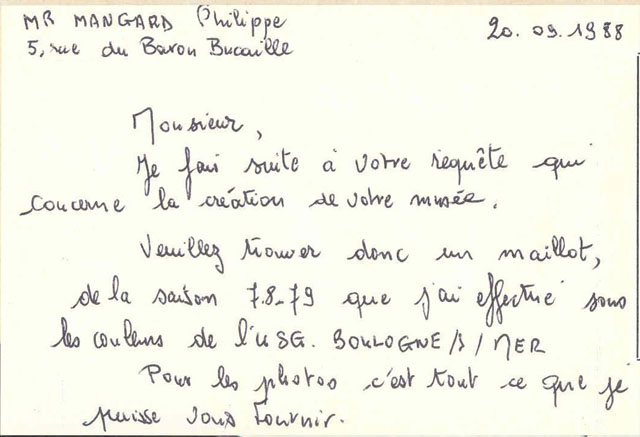 MR MANGARD Philippe
20.09.1988
5, rue du Baron Bucaille
Monsieur,
Je fais suite à votre requête qui
concerne la création de votre musée.
Veuillez trouver donc un maillot,
de la saison 78-79 que j'ai effectué sous
les couleurs de l'USG. BOULOGNE/S/MER
Pour les photos c'est tout ce que je
puisse vous fournir.